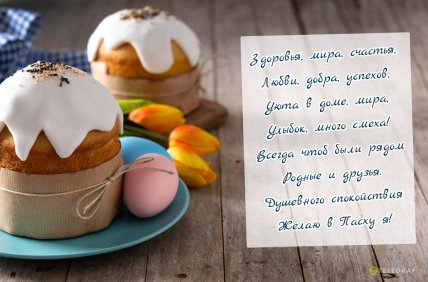 Здоровья, мира, счастья,
Любви, добра, успехов,
Уюта в доме, мира,
Улыбок, много смеха!
Всегда чтоб были рядом
Родные и друзья.
Душевного спокойствия
Желаю в Пасху я!
TELEGRAF